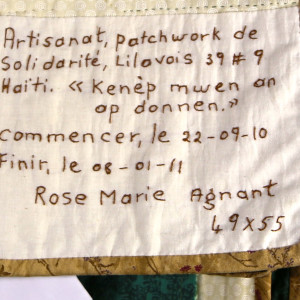 Artisanat, patchwork de
Solidarité, Lilavois 39 # 9
Haïti. « Kenèp mwen an
ap donnen. »
commencer, le 22-09-10
Finir, le 08-01-11
Rose Marie Agnant
49x55